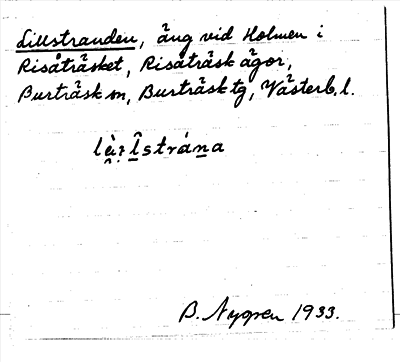 Lillstranden, äng vid Holmen i
Risåträsket, Risåträsk ägor,
Burträsk sn, Burträsk tg, Västerb. l.
B. Nygren 1933.